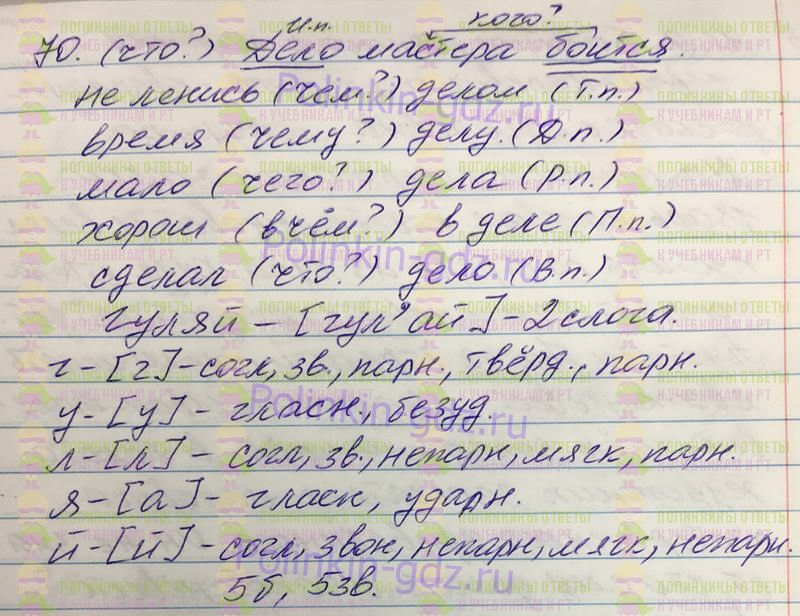 И.п. кого?
70. (что?) Дело мастера боится.
не ленись (чем?) делом (Т.п.)
время (чему?) делу. (Д.п.)
мало (чего?) дела (Р.п.)
хорош (в чём?) в деле (П.п.)
сделал (что?) дело (В.п.)
гуляй – [гул'ай] – 2 слога.
г – [г] – согл, зв., парн., твёрд., парн.
у – [у] – гласн., безуд
л – [л] – согл, зв., непарн, мягк, парн.
я – [а] – гласн, ударн.
й – [й] – согл, звон, непарн, мягк, непарн.
5б, 5зв.
Polinkin-gdz.ru
Polinkin-gdz.ru
Polinkin-gdz.ru
Polinkin-gdz.ru
ПОЛИНКИНЫ ОТВЕТЫ
К УЧЕБНИКАМ И РТ